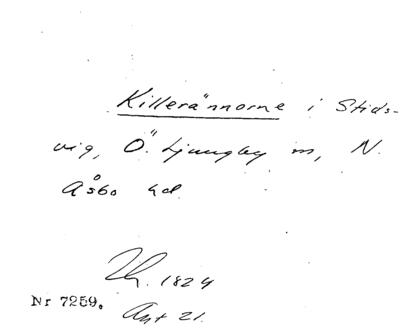 Killerännorne i Stids-
vig, Ö. Ljungby sn, N.
Åsbo hd
1824
Nr 7259. Akt 21.